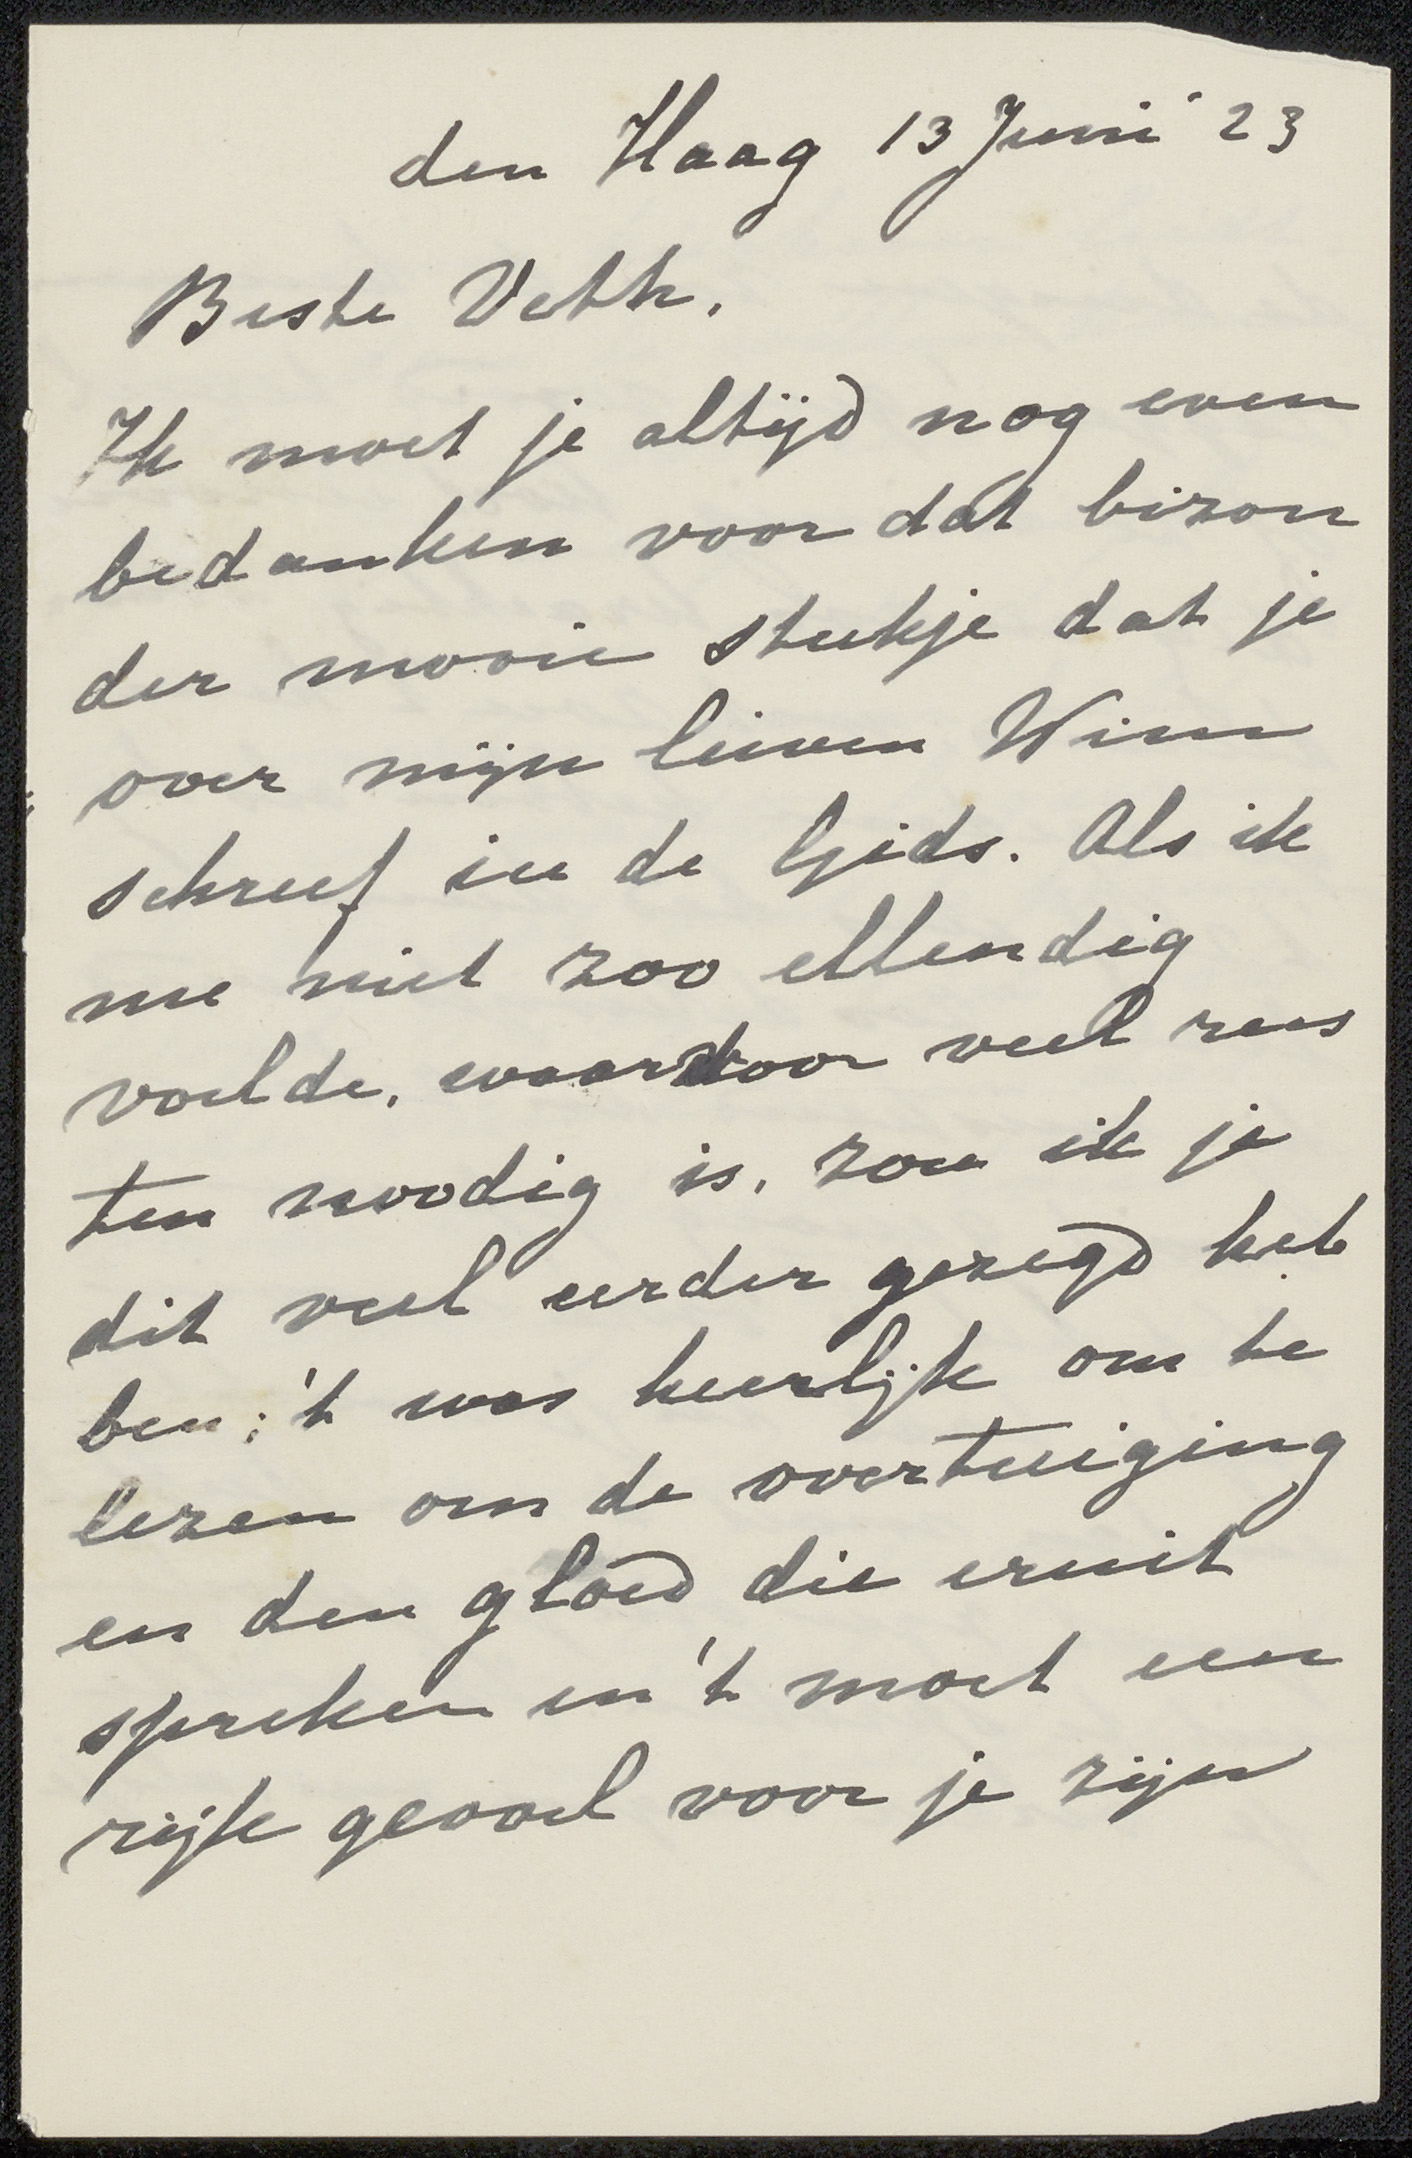 den Haag 13 Juni '23
Beste Veth,
Ik moet je altijd nog even
bedanken voor dat bizon
der mooie stukje dat je
over mijn lieven Wim
schreef in de Gids. Als ik
me niet zoo ellendig
voelde, waardoor veel rus
ten noodig is, zou ik je
dit veel eerder gezegd heb
ben; 't was heerlijk om te
lezen om de overtuiging
en den gloed die eruit
spreken en 't moet een
rijk gevoel voor je zijn